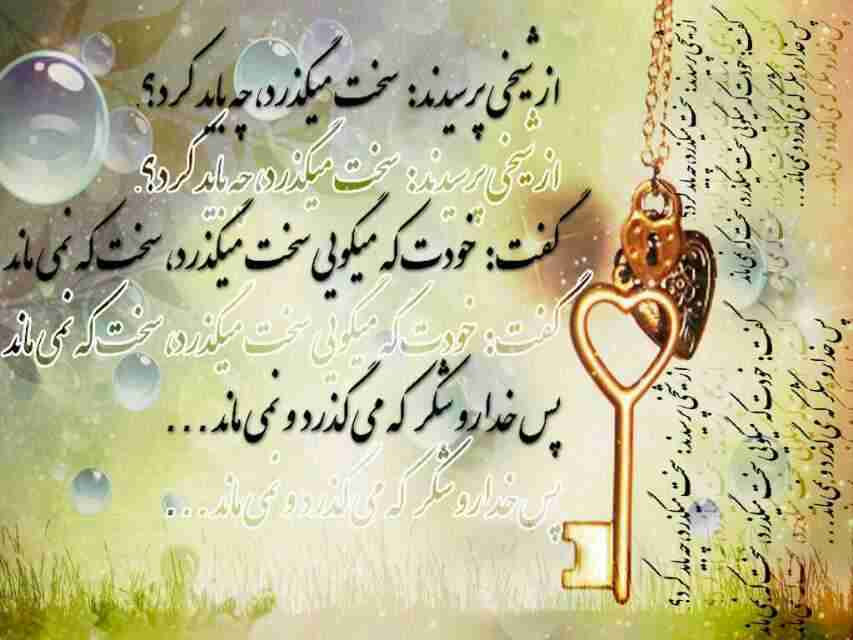 از شیخی پرسیدند: سخت میگذرد، چه باید کرد؟
از شیخی پرسیدند: سخت میگذرد، چه باید کرد؟
گفت: خودت که میگویی سخت میگذرد، سخت که نمی ماند
گفت: خودت که میگویی سخت میگذرد، سخت که نمی ماند
پس خدارو شکر که می گذرد و نمی ماند...
پس خدارو شکر که می گذرد و نمی ماند...
از شیخی پرسیدند: سخت میگذرد، چه باید کرد؟
گفت: خودت که میگویی سخت میگذرد، سخت که نمی ماند
پس خدارو شکر که می گذرد و نمی ماند...
از شیخی پرسیدند: سخت میگذرد، چه باید کرد؟
گفت: خودت که میگویی سخت میگذرد، سخت که نمی ماند
پس خدارو شکر که می گذرد و نمی ماند...